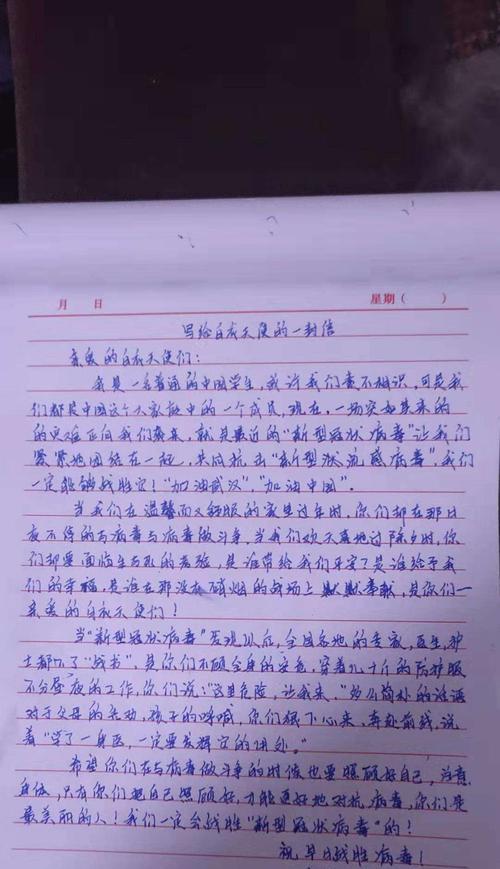 月 日 星期( )
写给白衣天使的一封信
亲爱的白衣天使们:
我是一名普通的中国学生,或许我们素不相识,可是我
们都是中国这个大家庭中的一个成员,现在,一场突如其来的
的灾难正向我们袭来,就是最近的"新型冠状病毒"让我们
紧紧地团结在一起,共同抗击"新型状流感病毒",我们
一定能够战胜它!"加油武汉","加油中国".
当我们在温馨而又舒服的家里过年时,你们却在那日
夜不停的与病毒与病毒做斗争,当我们欢天喜地过除夕时,你
们却要面临生与死的考验,是谁带给我们平安了是谁给予我
们的幸福,是谁在那没有硝烟的战场上默默奉献,是你们一
亲爱的白衣天使们!
当"新型冠状病毒"发现以后,全国各地的专家,医生,护
士都下了"战书",是你们不顾全身的安危,穿着几十斤的防护服
不分昼夜的工作,你们说:"这里危险,让我来,"多么简朴的话语
对于父母的劝,孩子的呼喊,你们狠下心来,奔赴前线,说
着"学了一身医,一定要发挥它的用处。"
希望你们在与病毒做斗争的时候也要照顾好自己,注意
身体,只有你们把自己照顾好,才能更好地对抗病毒,你们是
最美丽的人!我们一定会战胜"新型冠状病毒"的!
祝早日战胜病毒!